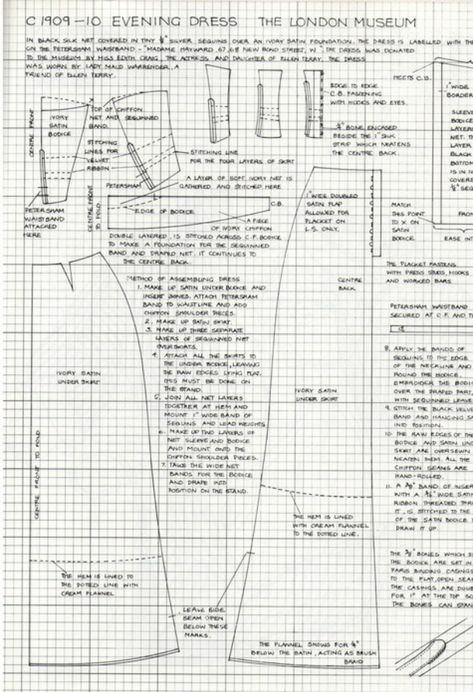 C 1909-10 EVENING DRESS THE LONDON MUSEUM
IN BLACK SILK NET COVERED IN TINY 1/8" SILVER SEQUINS OVER AN IVORY SATIN FOUNDATION. THE DRESS IS LABELLED WITH TH
ON THE PETERSHAM WAISTBAND - "MADAME HAYWARD, 67, 68 NEW BOND STREET, W". THE DRESS WAS DONATED
TO THE MUSEUM BY MISS EDITH CRAIG, THE ACTRESS AND DAUGHTER OF ELLEN TERRY. THE DRESS
WAS WORN BY LADY MAUD WARRENDER, A
FRIEND OF ELLEN TERRY.
CENTRE FRONT
IVORY
SATIN
BODICE
TOP OF CHIFFON
NET AND SEQUINNED
BAND.
STITCHING
LINES FOR
VELVET
RIBBON
PETERSHAM
PETERSHAM
WAISTBAND
ATTACHED
HERE
EDGE TO EDGE
C.B. FASTENING
WITH HOOKS AND EYES.
BONE ENCASED
BESIDE THE 1" SILK
STRIP WHICH NEATENS
THE CENTRE BACK.
STITCHING LINE
FOR THE FOUR LAYERS OF SKIRT
A LAYER OF SOFT IVORY NET IS
GATHERED AND STITCHED HERE
C.B.
CENTRE FRONT
TO FOLD
EDGE OF BODICE
A PIECE
OF IVORY CHIFFON
DOUBLE LAYERED, IS STITCHED ACROSS C.F. BODICE
TO MAKE A FOUNDATION FOR THE SEQUINNED
BAND AND DRAPED NET. IT CONTINUES TO
THE CENTRE BACK.
1" WIDE DOUBLED
SATIN FLAP
ALLOWED FOR
PLACKET ON
L.S. ONLY.
MEETS C.B.
1" WIDE
BORDER
SLEEVE
BODICE
LAYERS
NET. T
LAYER
BLACK
BOTTOM
IS IN
COVERE
MATCH
THIS POINT
TO X ON
SATIN
BODICE
EASE INT
THE PLACKET FASTENS
WITH PRESS STUDS, HOOKS
AND WORKED BARS.
PETERSHAM WAISTBAND
SECURED AT C.F. AND
METHOD OF ASSEMBLING DRESS
1. MAKE UP SATIN UNDER BODICE AND
INSERT BONES. ATTACH PETERSHAM
BAND TO WAISTLINE AND ADD
CHIFFON SHOULDER PIECES.
2. MAKE UP SATIN SKIRT.
3. MAKE UP THREE SEPARATE
LAYERS OF SEQUINNED NET
OVERSKIRTS.
4. ATTACH ALL THE SKIRTS TO
THE UNDER BODICE, LEAVING
THE RAW EDGES LYING FLAT.
THIS MUST BE DONE ON
THE STAND.
5. JOIN ALL NET LAYERS
TOGETHER AT HEM AND
MOUNT 1" WIDE BAND OF
SEQUINS AND LEAD WEIGHTS.
6. MAKE UP TWO LAYERS OF
NET SLEEVE AND BODICE
AND MOUNT ONTO THE
CHIFFON SHOULDER PIECES.
7. TACK THE WIDE NET
BANDS FOR THE BODICE
AND DRAPE INTO
POSITION ON THE STAND.
IVORY SATIN
UNDER SKIRT
CENTRE FRONT TO FOLD
THE HEM IS LINED TO
THE DOTTED LINE WITH
CREAM FLANNEL
LEAVE SIDE
SEAM OPEN
BELOW THESE
MARKS.
CENTRE
BACK
IVORY SATIN
UNDER SKIRT
THE HEM IS LINED
WITH CREAM FLANNEL
TO THE DOTTED LINE.
THE FLANNEL SHOWS FOR 1/4"
BELOW THE SATIN, ACTING AS BRUSH
BRAID
8. APPLY THE BANDS OF
SEQUINS TO THE EDGE
OF THE NECKLINE AND
ROUND THE BODICE.
EMBROIDER THE BODI
OVER THE DRAPED PART,
WITH SEQUINNED LEAVE
9. STITCH THE BLACK VELVE
BAND AND HANGING SA
INTO POSITION.
10. THE RAW EDGES OF THE
BODICE AND SATIN UN
SKIRT ARE OVERSEWN
NEATEN THEM. ALL THE
CHIFFON SEAMS ARE
HAND-ROLLED.
11. A BAND OF INSER
WITH A WIDE SATI
RIBBON THREADED THR
IT, IS STITCHED TO THE
OF THE SATIN BODICE
DRAW IT UP.
THE BONES WHICH S
THE BODICE ARE SET IN
PARIS BINDING CASINGS
TO THE FLAT, OPEN SEA
THE CASINGS ARE DOUB
FOR 1" AT THE TOP SO
THE BONES CAN STAN